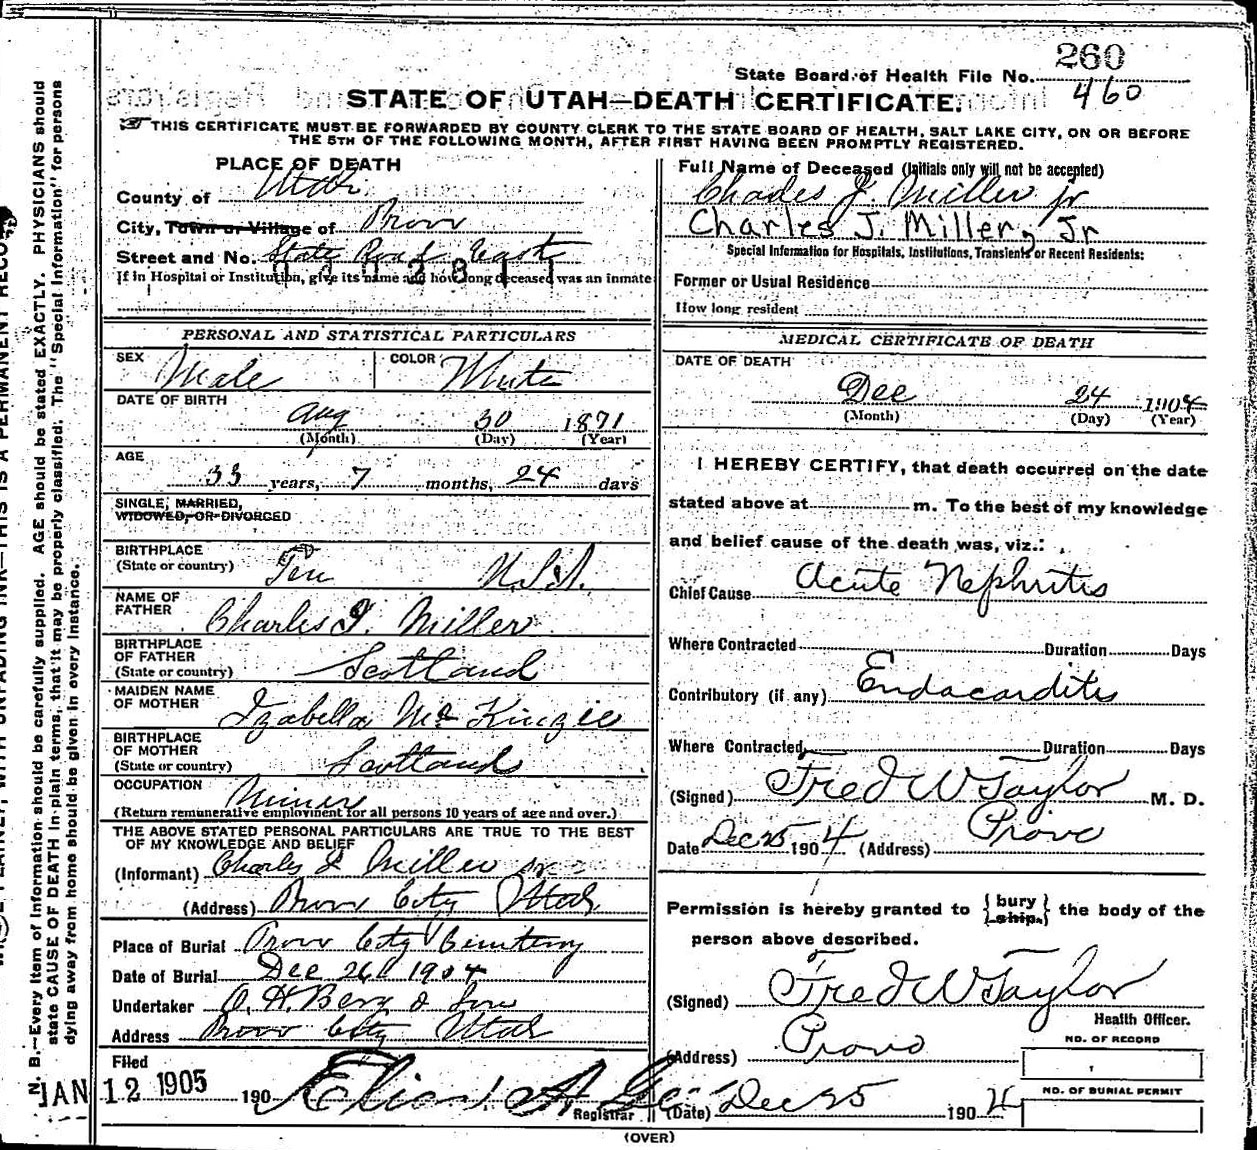 260
State Board of Health File No.
460
STATE OF UTAH—DEATH CERTIFICATE.
THIS CERTIFICATE MUST BE FORWARDED BY COUNTY CLERK TO THE STATE BOARD OF HEALTH, SALT LAKE CITY, ON OR BEFORE
THE 5TH OF THE FOLLOWING MONTH, AFTER FIRST HAVING BEEN PROMPTLY REGISTERED.
PLACE OF DEATH
County of Utah
City, Town or Village of Provo
Street and No. State Road East
If in Hospital or Institution, give its name and how long deceased was an inmate
PERSONAL AND STATISTICAL PARTICULARS
SEX Male COLOR White
DATE OF BIRTH
Aug 30 1871
(Month) (Day) (Year)
AGE
33 years, 7 months, 24 days
SINGLE, MARRIED,
WIDOWED, OR DIVORCED
BIRTHPLACE
(State or country) U.S.A.
NAME OF
FATHER Charles J. Miller
BIRTHPLACE
OF FATHER
(State or country) Scotland
MAIDEN NAME
OF MOTHER Izabella Mc Kinzie
BIRTHPLACE
OF MOTHER
(State or country) Scotland
OCCUPATION Miner
(Return remunerative employment for all persons 10 years of age and over.)
THE ABOVE STATED PERSONAL PARTICULARS ARE TRUE TO THE BEST
OF MY KNOWLEDGE AND BELIEF
(Informant) Charles J Miller sr
(Address) Provo City Utah
Place of Burial Provo City Cemetery
Date of Burial Dec 26 1904
Undertaker O. H. Berg & Son
Address Provo City Utah
Filed
JAN 12 1905 190
Registrar
Full Name of Deceased (Initials only will not be accepted)
Charles J. Miller jr
Charles J. Miller, Jr
Special Information for Hospitals, Institutions, Transients or Recent Residents:
Former or Usual Residence
How long resident
MEDICAL CERTIFICATE OF DEATH
DATE OF DEATH
Dec 24 1904
(Month) (Day) (Year)
I HEREBY CERTIFY, that death occurred on the date
stated above at m. To the best of my knowledge
and belief cause of the death was, viz.:
Chief Cause Acute Nephritis
Where Contracted Duration Days
Contributory (if any) Endacarditis
Where Contracted Duration Days
(Signed) Fred W Taylor M. D.
Date Dec 25 1904 (Address) Provo
Permission is hereby granted to {bury ship.} the body of the
person above described.
(Signed) Fred W Taylor
Health Officer.
(Address) Provo
NO. OF RECORD
NO. OF BURIAL PERMIT
(Date) Dec 25 1904
(OVER)
N. B.—Every item of information should be carefully supplied. AGE should be stated EXACTLY. PHYSICIANS should
state CAUSE OF DEATH in plain terms, that it may be properly classified. The "Special Information" for persons
dying away from home should be given in every instance.